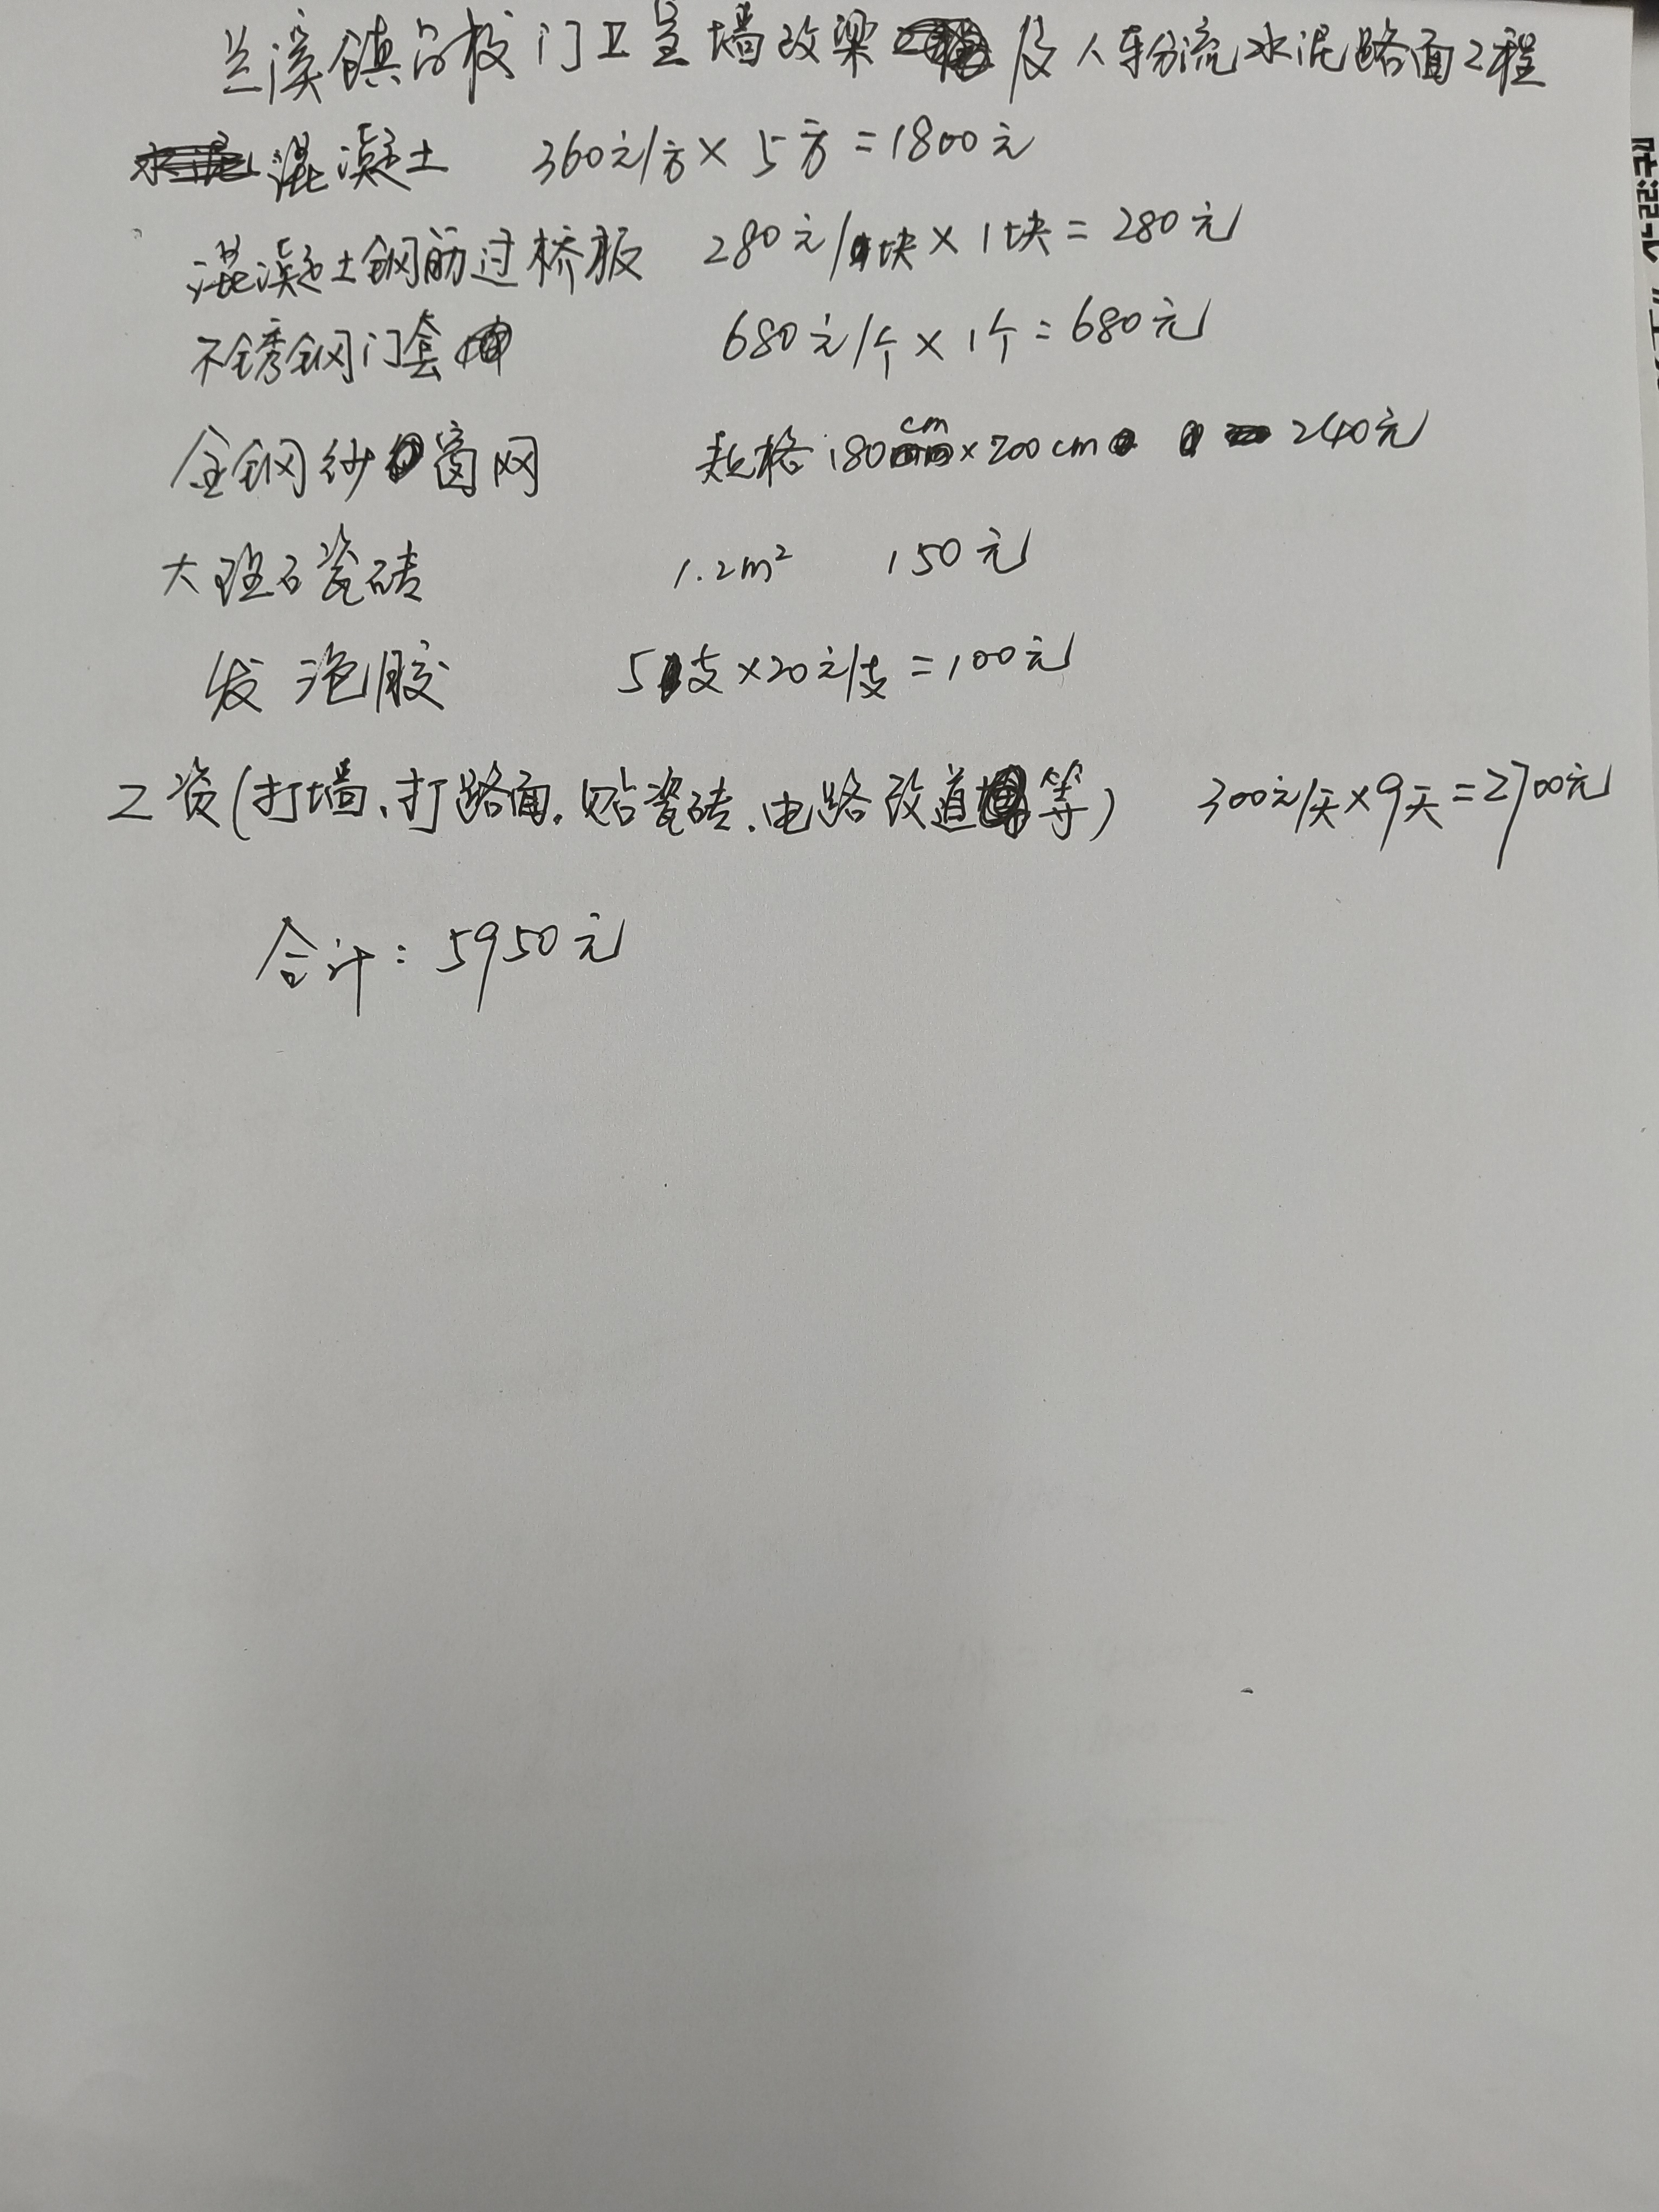 兰溪镇学校门卫室墙改梁及人车分流水泥路面工程
混凝土 360元/方×5方=1800元
混凝土钢筋过桥板 280元/块×1块=280元
不锈钢门套 680元/个×1个=680元
金钢纱窗网 规格180cm×200cm 240元
大理石瓷砖 1.2m² 150元
发泡胶 5支×20元/支=100元
工资(打墙、打路面、贴瓷砖、电路改道等) 300元/天×9天=2700元
合计:5950元